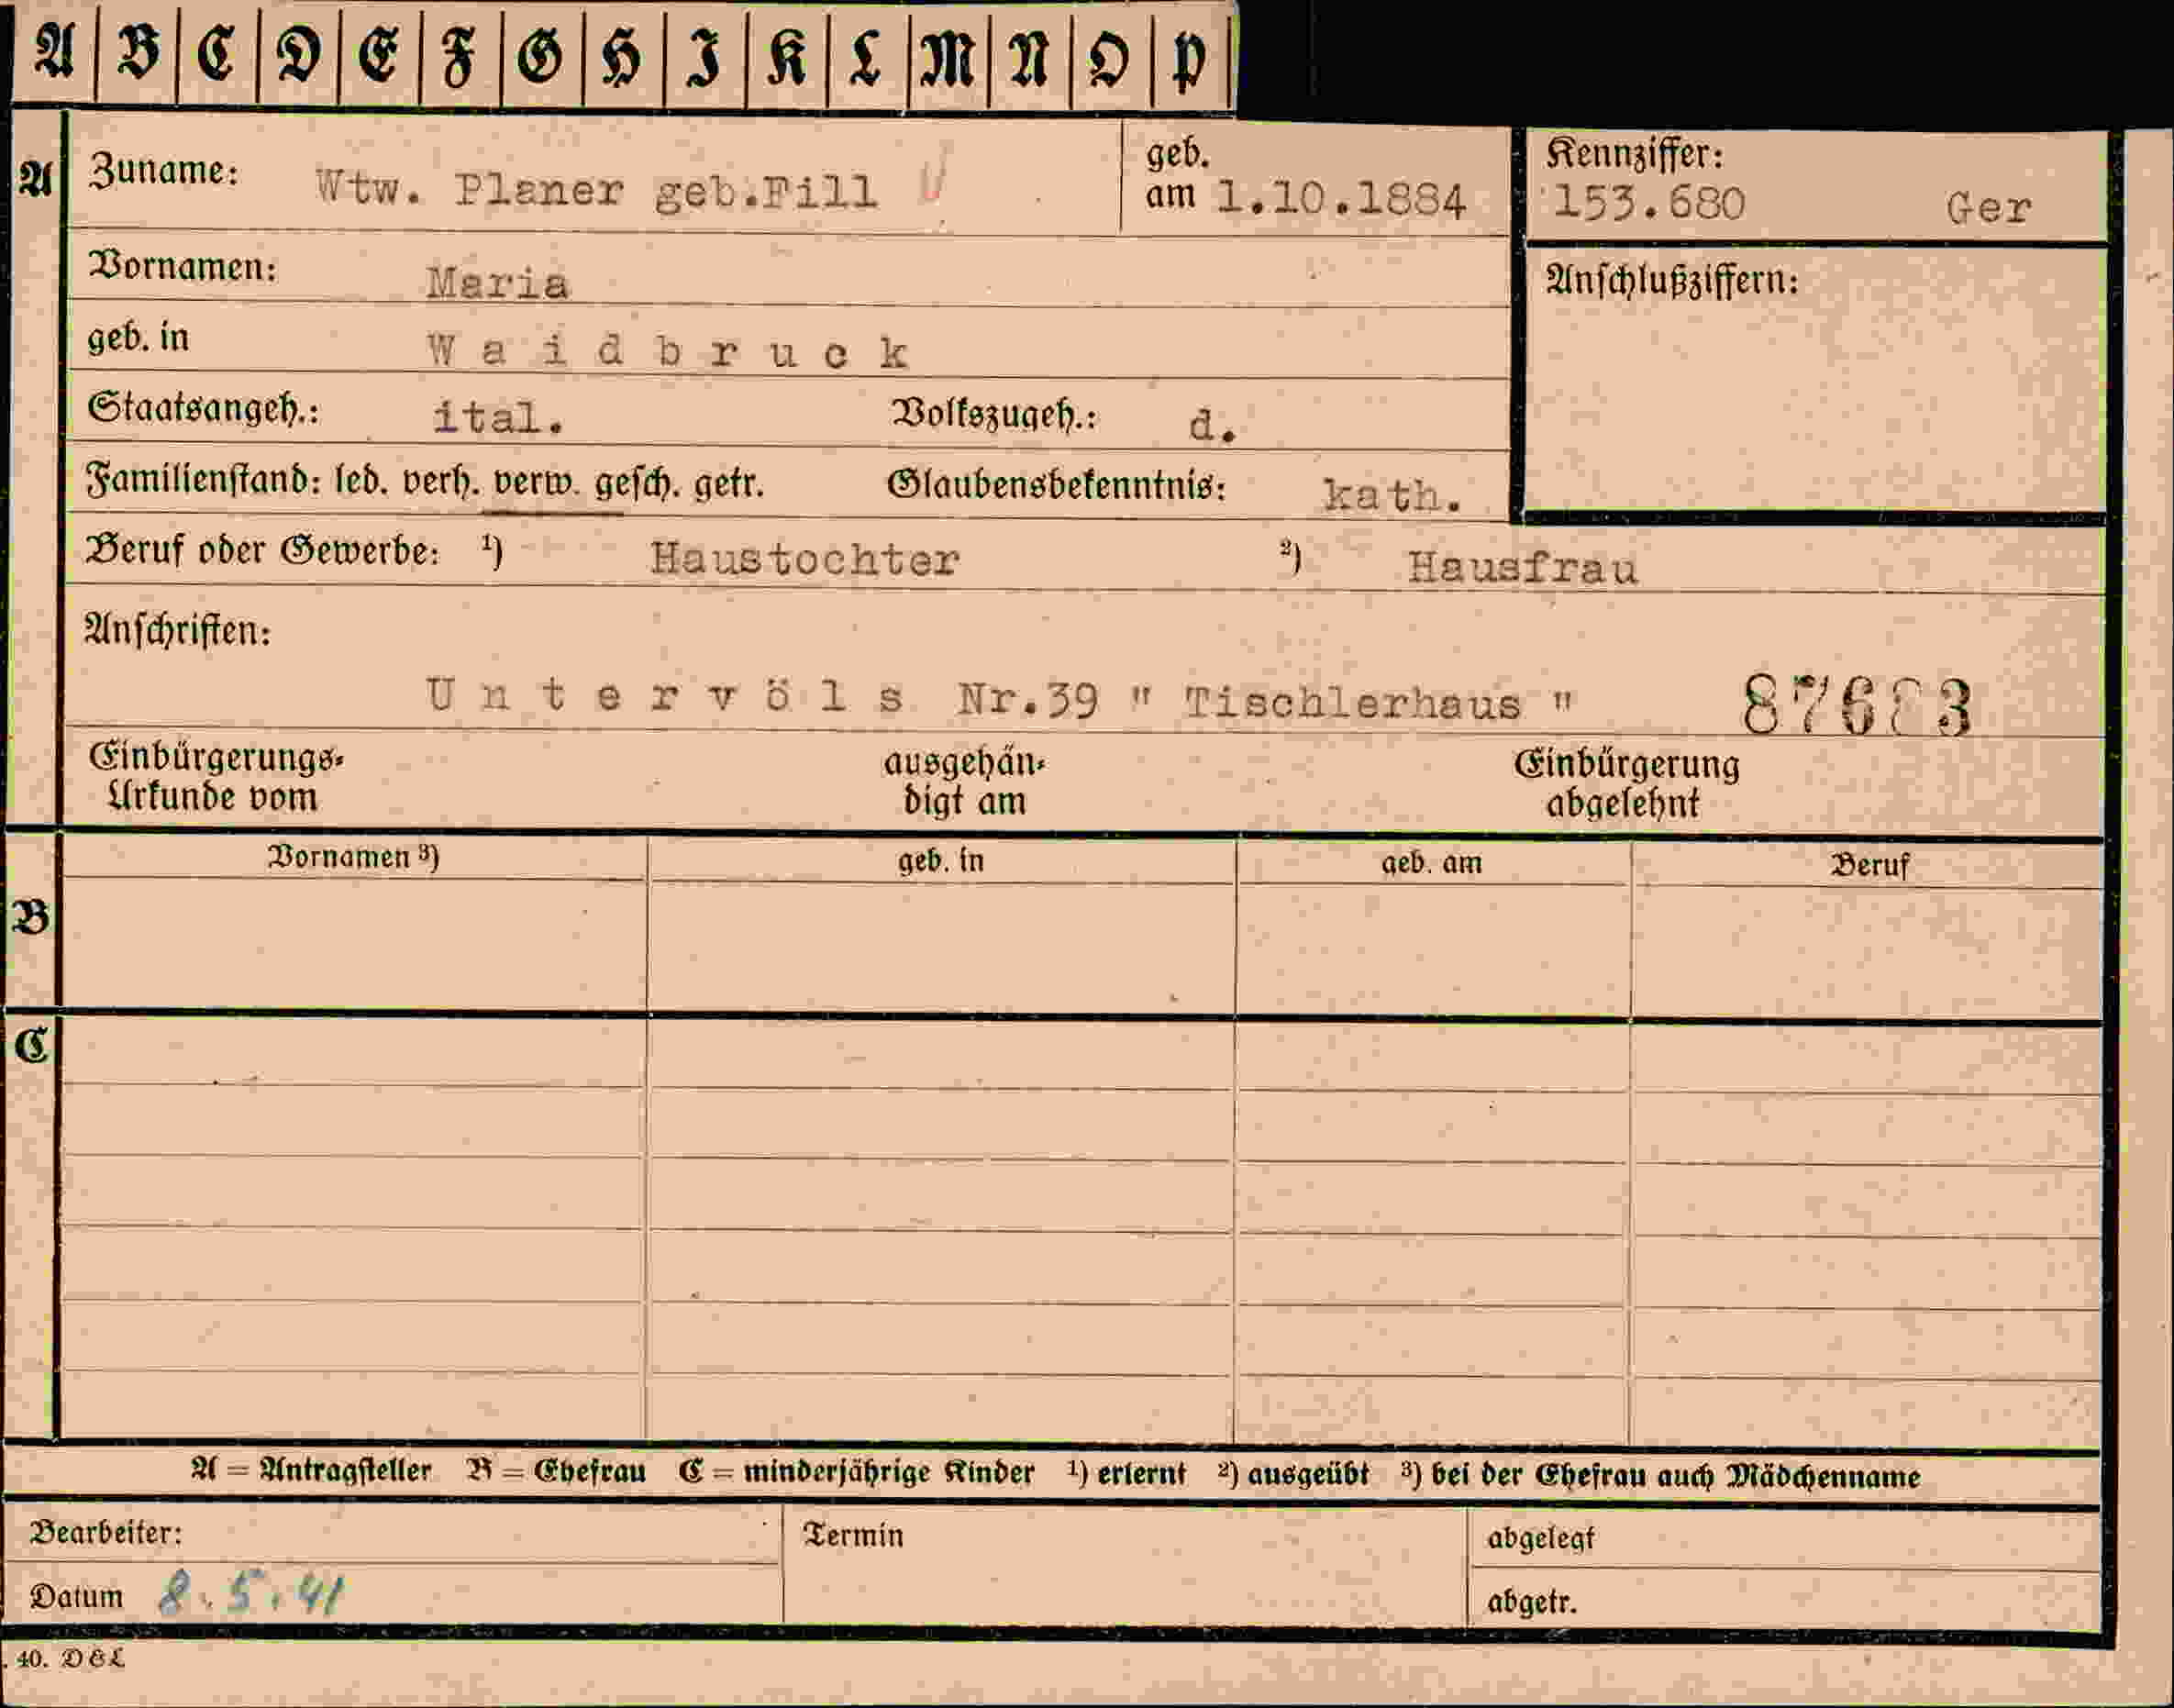 A B C D E F G H I K L M N O P
A Zuname: Wtw. Planer geb.Fill geb. am 1.10.1884 Kennziffer: 153.680 Ger
Vornamen: Maria Anschlußziffern:
geb. in W a i d b r u c k
Staatsangeh.: ital. Volkszugeh.: d.
Familienstand: led. verh. verw. gesch. getr. Glaubensbekenntnis: kath.
Beruf oder Gewerbe: ¹) Haustochter ²) Hausfrau
Anschriften:
U n t e r v ö l s Nr.39 " Tischlerhaus "
Einbürgerungs- ausgehän- Einbürgerung
Urkunde vom digt am abgelehnt
Vornamen ³) geb. in geb. am Beruf
B
C
A = Antragsteller B = Ehefrau C = minderjährige Kinder ¹) erlernt ²) ausgeübt ³) bei der Ehefrau auch Mädchenname
Bearbeiter: Termin abgelegt
Datum 8.5.41 abgetr.
. 40. D&L